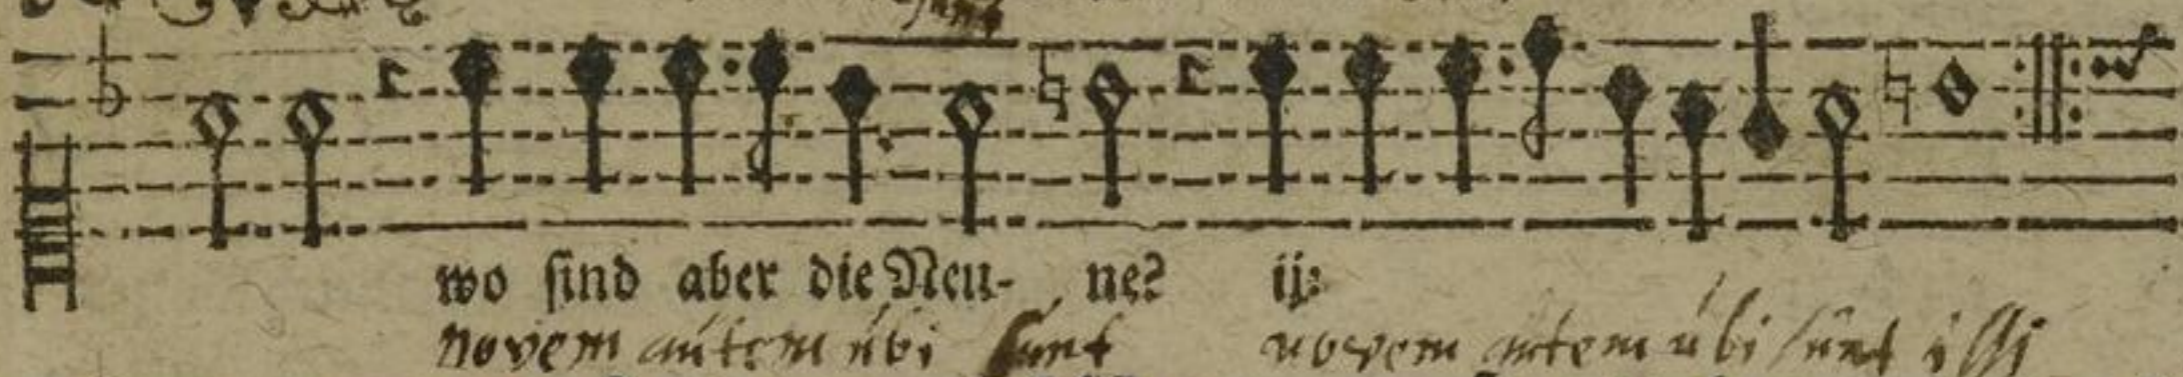 wo ſind aber die Neu- ne? ij:
novem autem ubi sunt novem autem ubi sunt illi